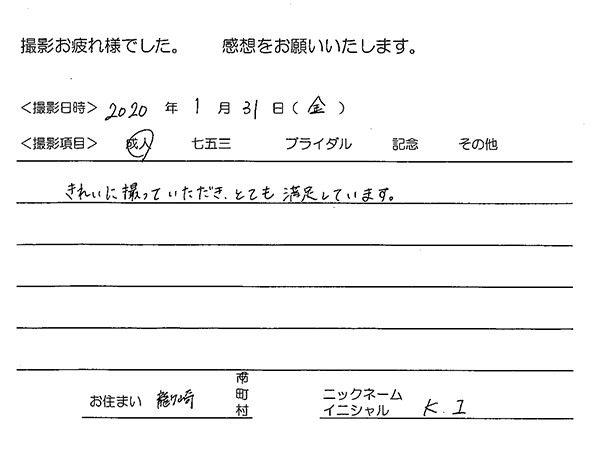 撮影お疲れ様でした。 感想をお願いいたします。
＜撮影日時＞ 2020 年 1 月 31 日（ 金 ）
＜撮影項目＞ 成人 七五三 ブライダル 記念 その他
きれいに撮っていただき、とても満足しています。
お住まい 龍ヶ崎 市町村 ニックネーム イニシャル K.I